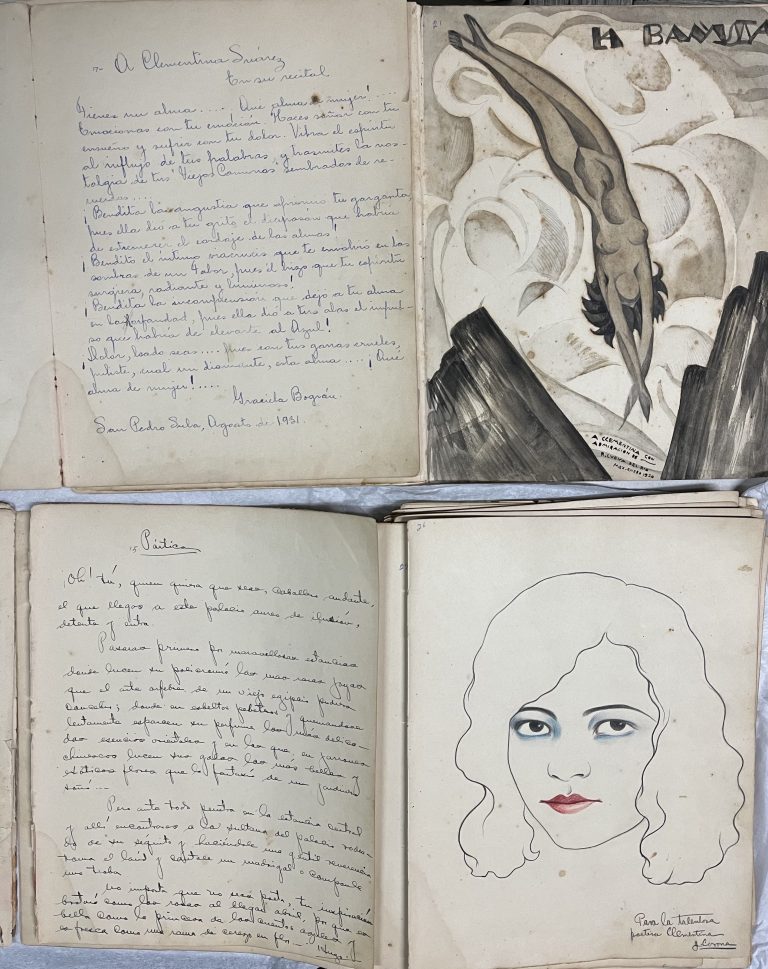 A Clementina Suárez
En su recital
Tienes un alma..... Que alma de mujer!....
Emocionas con tu emoción. Haces soñar con tu
ensueño y sufrir con tu dolor. Vibra el espíritu
al influjo de tus palabras, y trasmites la nos-
talgia de tus Viejos Caminos sembrados de re-
cuerdos....
¡Bendita la angustia que oprimió tu garganta,
pues ella dió a tu grito el diapasón que habría
de estremecer el cordaje de las almas!
¡Bendito el íntimo que te envolvió en las
sombras de un Tabor, pues él hizo que tu espíritu
surgiera, radiante y luminoso!
¡Bendita la incomprensión que dejó a tu alma
en la horfandad, pues ella dió a tus alas el impul-
so que habría de elevarte al Azul!
¡Dolor, loado seas.... pues con tus garras crueles,
puliste, cual un diamante, esta alma.... ¡Qué
alma de mujer!.....
Graciela Bográn.
San Pedro Sula, Agosto de 1931.
21
LA BAÑISTA
A CLEMENTINA CON
ADMIRACION DE
MEX. ENERO 1930
15 Pórtico
¡Oh! tú, quien quiera que seas, caballero andante,
el que llegas a este palacio aureo de ilusión,
detente y entra
Pasarás primero por maravillosas estancias
donde lucen su policromía las mas raras joyas
que el arte orfebre de un viejo egipcio pudiera
; donde en esbeltos pebeteros y quemandose
lentamente esparcen su perfume las más delica-
das esencias orientales y en las que, en jarrones
chinescos lucen sus galas las más bellas y
exóticas flores que la fantasía de un jardinero
soñó...
Pero ante todo penetra en la estancia central
y allí encontrarás a la sultana del palacio rodea-
da de su séquito y haciéndole una gentil reverencia
toma el laúd y cántale un madrigal o
una trova
No importa que no seas poeta, tu inspiración
brotará como las rosas al llegar abril, porque es
bella como la princesa de los cuentos azules y
es fresca como una rama de cerezo en flor
Hugo J
26
Para la talentosa
poetisa Clementina
J. Corona